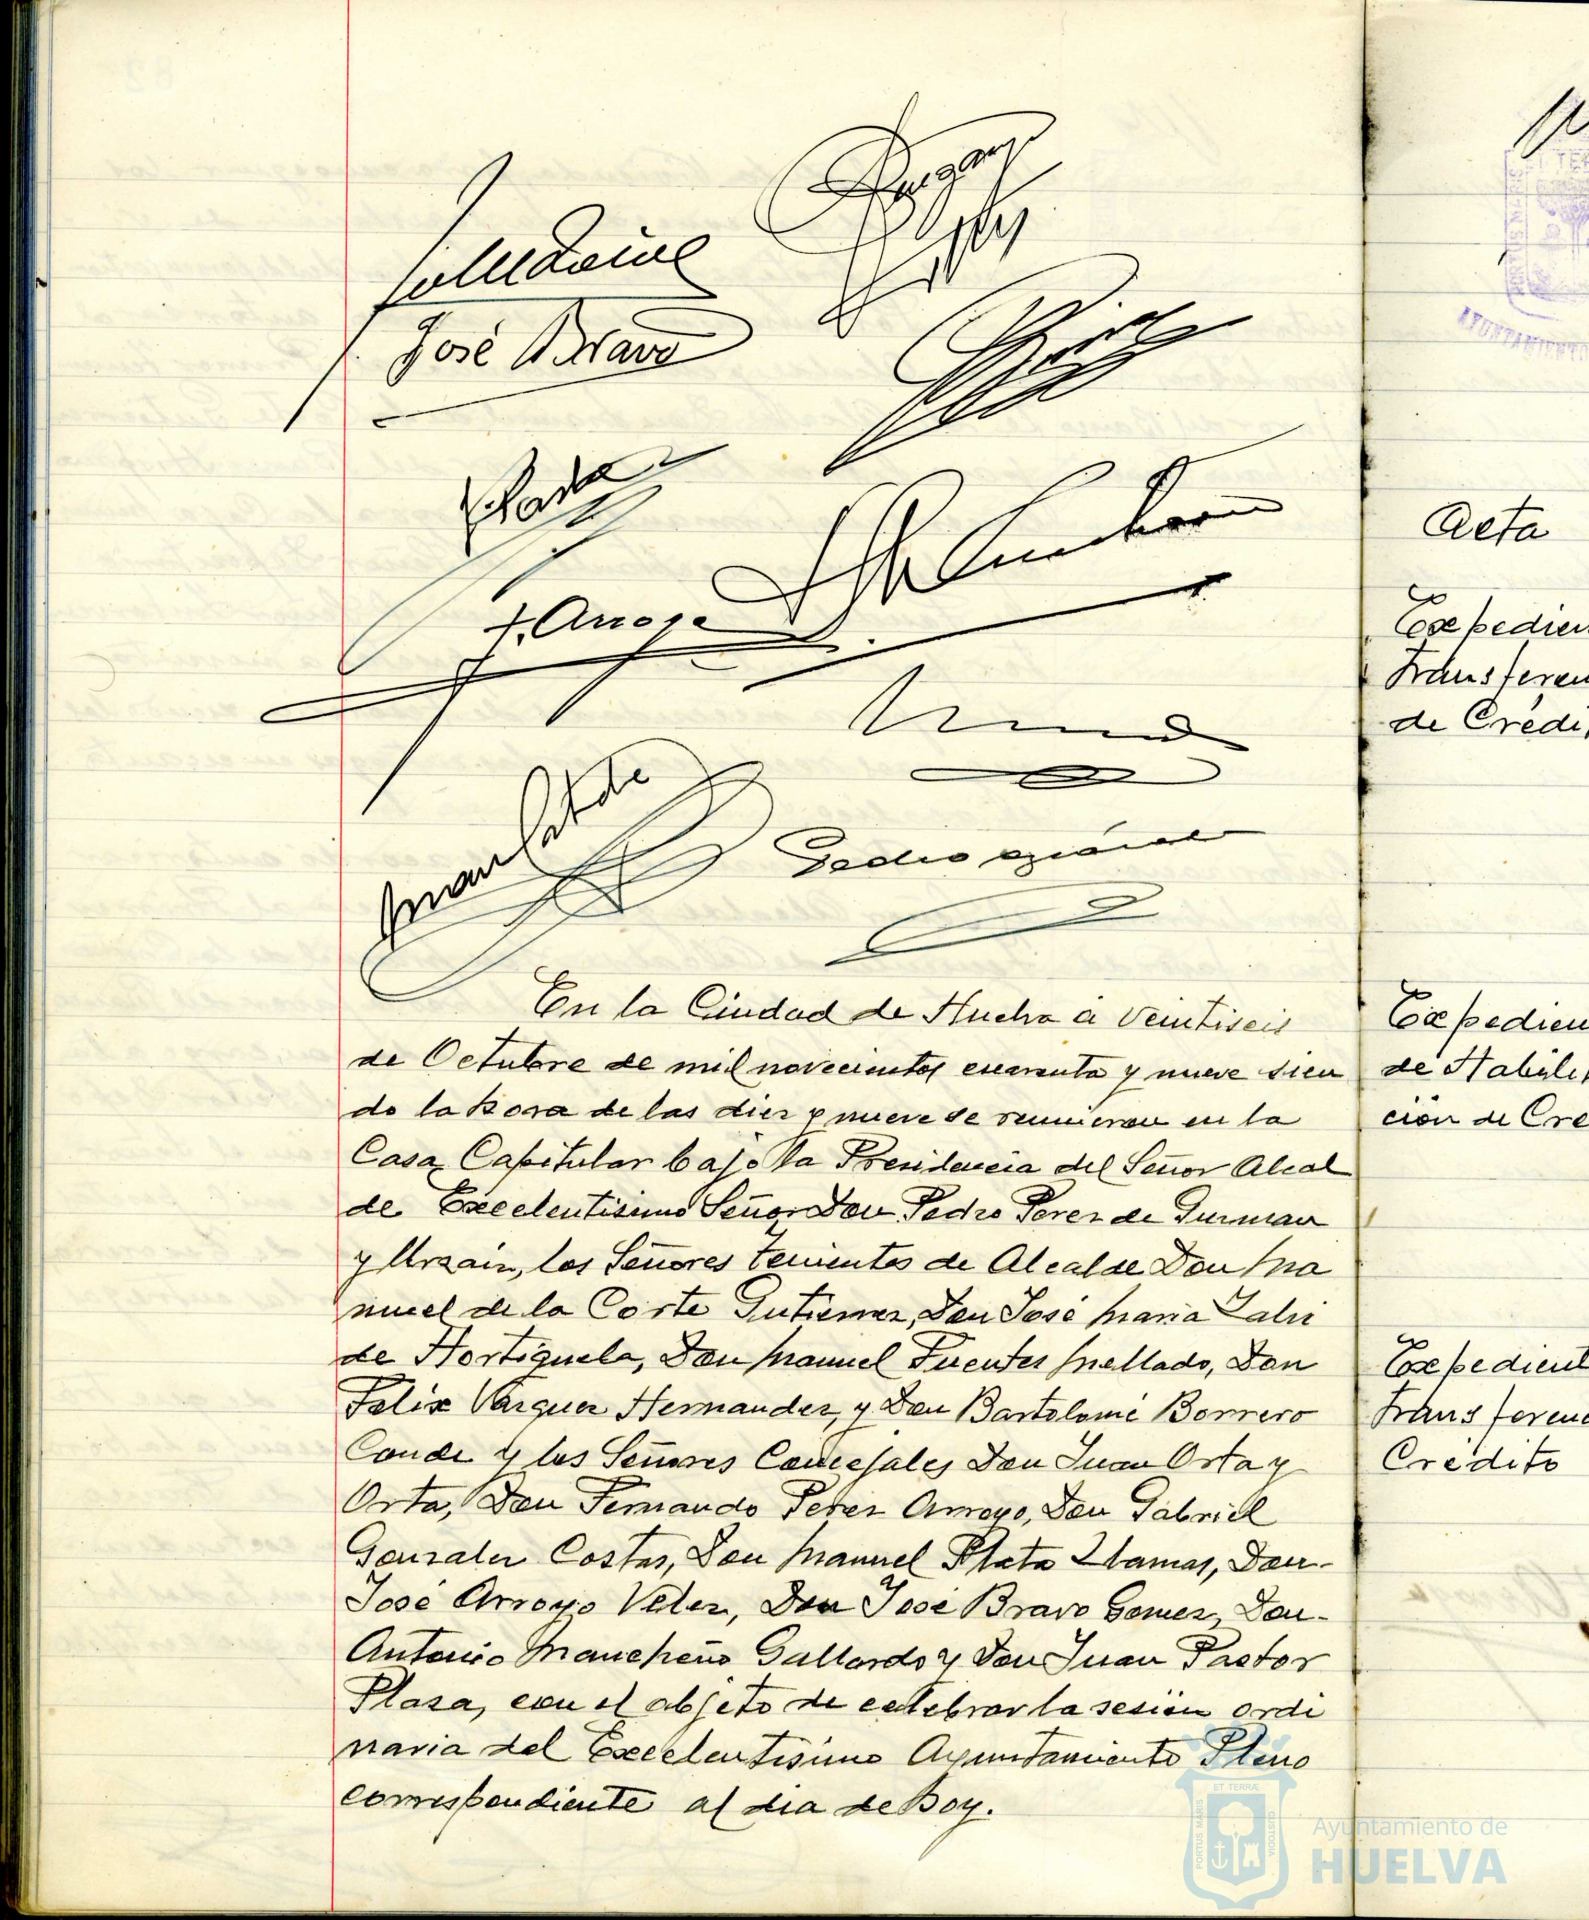 José Bravo
J. Arroyo
En la Ciudad de Huelva a veintiseis
de Octubre de mil novecientos cuarenta y nueve sien
do la hora de las diez y nueve se reunieron en la
Casa Capitular bajo la Presidencia del Señor Alcal
de Excelentisimo Señor Don Pedro Perez de Guzman
y Urzaiz, los Señores tenientes de Alcalde Don Ma
nuel de la Corte Gutierrez, Don José Maria
de Hortiguela, Don Manuel Fuentes Mellado, Don
Felix Vazquez Hernandez, y Don Bartolomé Borrero
Conde y los Señores Concejales Don Juan Orta y
Orta, Don Fernando Perez Arroyo, Don Gabriel
Gonzalez Costas, Don Manuel Plata Llamas, Don
José Arroyo Velez, Don José Bravo Gomez, Don
Antonio Mancheño Gallardo y Don Juan Pastor
Plaza, con el objeto de celebrar la sesión ordi
naria del Excelentisimo Ayuntamiento Pleno
correspondiente al dia de hoy.
Acta
Expedien
Transferen
de Crédi
Expedien
de Habili
ción de Cre
Expedient
Transferenc
Crédito
AYUNTAMIENTO
ET TERRÆ
PORTUS MARIS
CUSTODIA
Ayuntamiento de
HUELVA